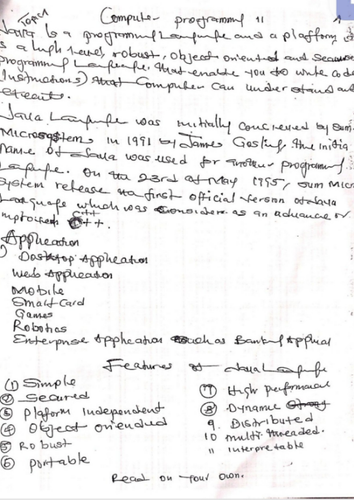 TOPIC
Computer programming 11
Java is a programming Language and a platform, is
a high level, robust, object oriented and secure
programming Language. that enable you to write code
Instructions) that Computer can understand and
execute.
Java Language was initially conceived by Sun
Microsystems in 1991 by James Gosling, the initia
name of Java was used for another programm
Language. On the 23rd of May 1995, Sun Micr
System release the first official version of Java
Language which was consider as an advance or
improved C++.
Application
Desktop Application
Web Application
Mobile
Smart Card
Games
Robotics
Enterprise Application such as Banking
Features of Java Language
(1) Simple
(2) Secured
(3) Plaform Independent
(4) Object oriended
(5) Robust
(6) portable
(7) High performance
(8) Dynamic
9. Distributed
10 multi-threaded.
11 interpretable
Read on your own.